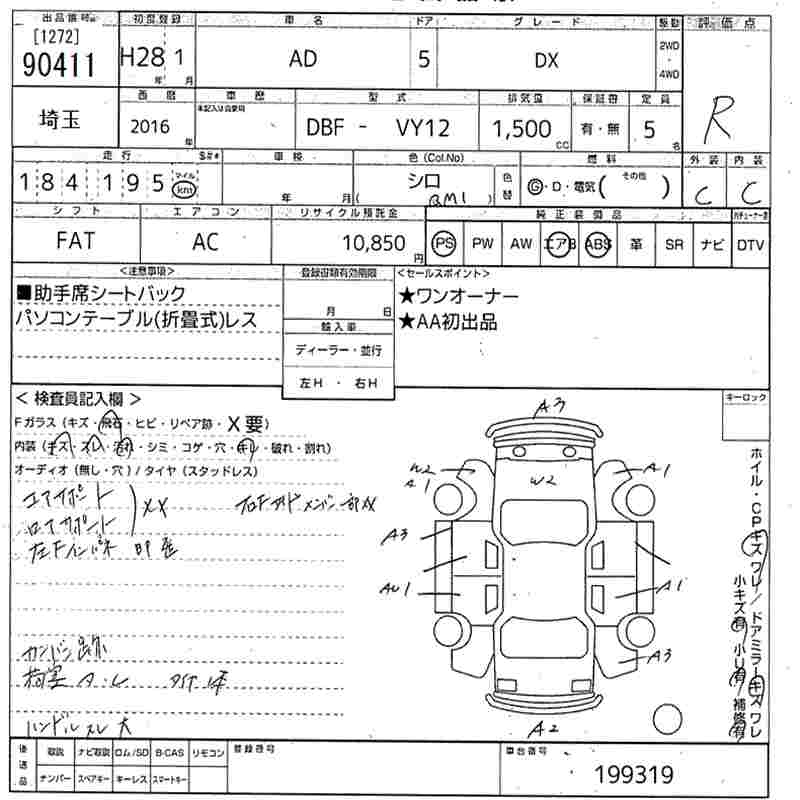 出品番号 初度登録 車名 ドア グレード 駆動 評価点
[1272]
90411 H28 年 1 月 AD 5 DX 2WD・4WD R
埼玉 西暦 車歴 型式 排気量 保証書 定員
2016 年 本記入は自家用 DBF - VY12 1,500 CC 有・無 5 名
走行 S#* 車検 色(Col.No) 燃料 外装 内装
184,195 マイル km 年 月 シロ ( QM1 ) 色替 G・D・電気( その他 ) C C
シフト エアコン リサイクル預託金 純正装備品
FAT AC 10,850 円 PS PW AW エアB ABS 革 SR ナビ DTV
<注意事項> 登録書類有効期限 <セールスポイント>
■助手席シートバック 月 日 ★ワンオーナー
パソコンテーブル(折畳式)レス 輸入車 ★AA初出品
ディーラー・並行
左H ・ 右H
< 検査員記入欄 > キーロック
Fガラス (キズ・飛石・ヒビ・リペア跡・X要)
内装 (キズ・スレ・汚れ・シミ・コゲ・穴・キレ・破れ・割れ)
オーディオ (無し・穴) / タイヤ (スタッドレス)
コアサポート XX
ロアサポート
A3
W2
A1
W2
A1
A3
A1
A3
A2
ハンドル スレ 大
ホイル・CPキズ ワレ/ドアミラーキズ ワレ
小キズ有 小U有/補修有
後送品 取説 ナビ取説 ロム/SD B-CAS リモコン 登録番号 車台番号
ナンバー スペアキー キーレス スマートキー 199319